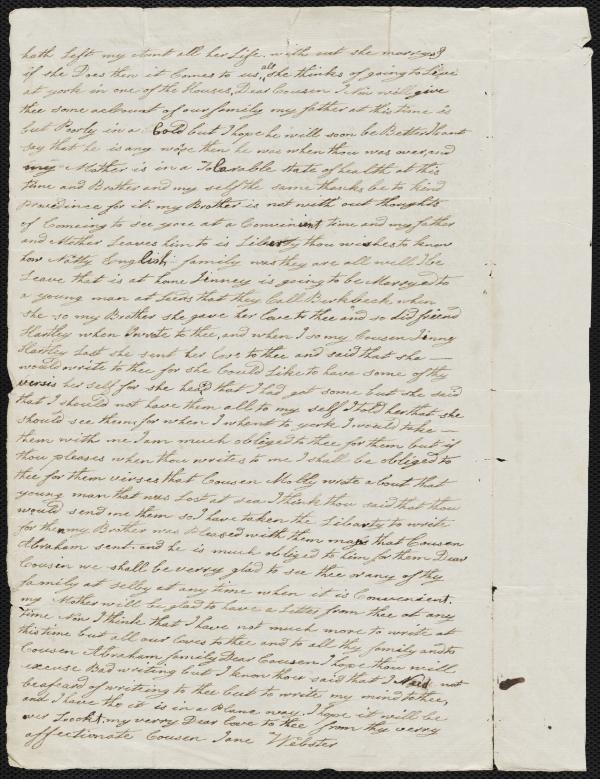 hath Left my Aunt all her Life. with out she marrys &
if she Does then it Comes to us all she thinks of going to Live
at york in one of the Houses, Dear Cousen I Now will give
thee some acbount of our family my father at this time is
but Poorly in a Cold but I hope he will soon be Better, I Cant
say that he is any worse then he was when thou was over, and
my Mother is in a Tolarable state of health at this
time and Brother and my self the same thanks be to kind
Providince for it. my Brother is not with out thoughts
of Comeing to see you at a Convinient time and my father
and Mother Leaves him to is Liberty thou wishes to know
how Natty English family was they are all well I be
Leave that is at home Jinney is going to be Marryed to
a young man at Leeds that they Call Birkbeck when
she so my Brother she gave her love to thee and so did friend
Hartley when I wrote to thee, and when I so my Cousen Jinny
Hartley Last she sent her Love to thee and said that she —
would write to thee for she Could Like to have some of thy
versis her self for she heard that I had got some but she said
that I should not have them all to my self I told her that she
should see them, for when I whent to york I would take —
them with me I am much obliged to thee for them but if
thou pleases when thou writes to me I shall be obliged to
thee for them verses that Cousen Molly wrote about that
young man that was Lost at sea I think thou said that thou
would send me them so I have taken the Libarty to write
for them my Brother was Pleased with them maps that Cousen
Abraham sent. and he is much obliged to him for them Dear
Cousen we shall be verry glad to see thee or any of thy
family at selby at any time when it is Convenient.
my Mother will be glad to have a Letter from thee at any
time Now I think that I have not much more to write at
this time but all our Loves to thee and to all thy family and to
Cousen Abraham family Dear Cousen I hope thou will
excuse Bad writing but I know thou said that I Need not
be afeard of writing to thee but to write my mind to thee,
and I have tho it is in a Plane way. I hope it will be
over Lookt. my verry Dear Love to thee from thy verry
affectionate Cousen Jane Webster